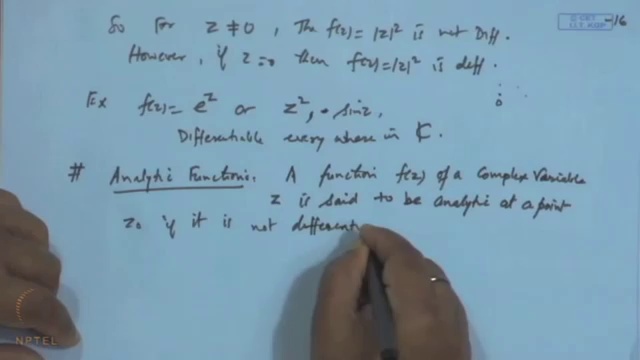 So For z ≠ 0, The f(z) = |z|² is not Diff.
However, if z = 0 then f(z) = |z|² is diff.
Ex f(z) = e^z or z², sin z,
Differentiable every where in ₵.
# Analytic Function: A function f(z) of a Complex Variable
z is said to be analytic at a point
z₀ if it is not different
© CET
I.I.T. KGP
-16
0
NPTEL